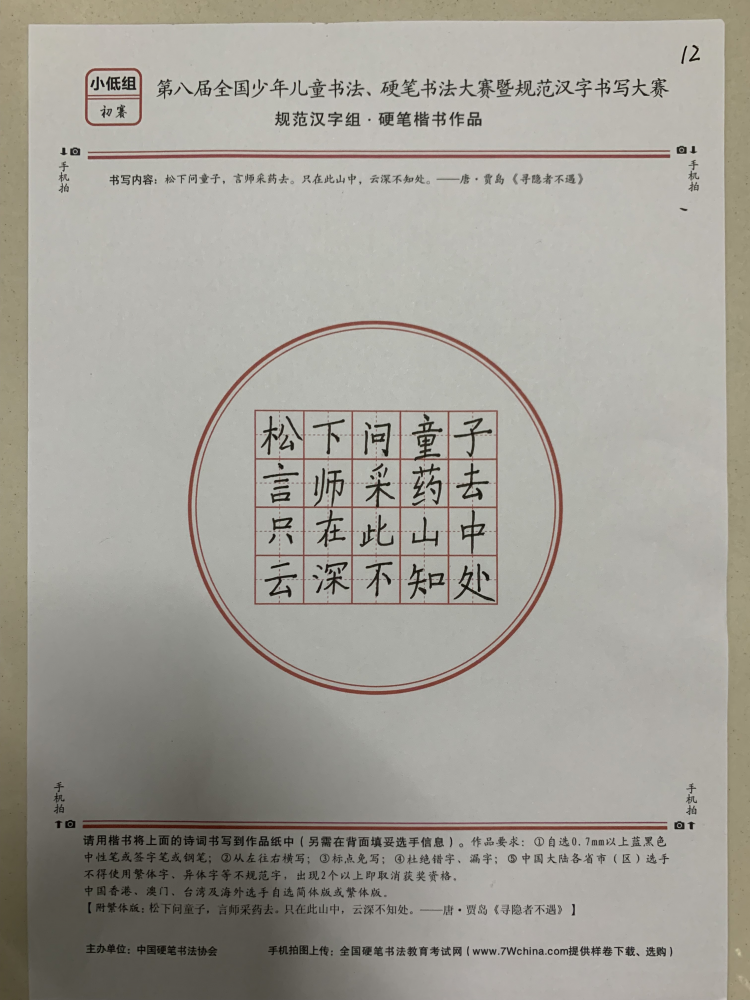 12
小低组
初赛
第八届全国少年儿童书法、硬笔书法大赛暨规范汉字书写大赛
规范汉字组·硬笔楷书作品
手机拍
手机拍
书写内容：松下问童子，言师采药去。只在此山中，云深不知处。——唐·贾岛《寻隐者不遇》
松下问童子
言师采药去
只在此山中
云深不知处
手机拍
手机拍
请用楷书将上面的诗词书写到作品纸中（另需在背面填妥选手信息）。作品要求：①自选0.7mm以上蓝黑色
中性笔或签字笔或钢笔；②从左往右横写；③标点免写；④杜绝错字、漏字；⑤中国大陆各省市（区）选手
不得使用繁体字、异体字等不规范字，出现2个以上即取消获奖资格。
中国香港、澳门、台湾及海外选手自选简体版或繁体版。
【附繁体版：松下问童子，言師采药去。只在此山中，云深不知处。——唐·贾岛《寻隐者不遇》】
主办单位：中国硬笔书法协会
手机拍图上传：全国硬笔书法教育考试网（www.7Wchina.com提供样卷下载、选购）